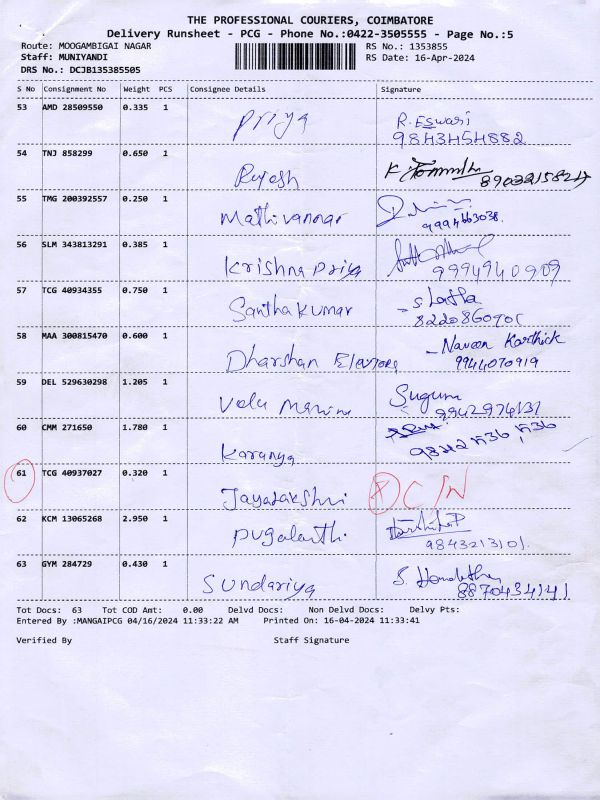 THE PROFESSIONAL COURIERS, COIMBATORE
Delivery Runsheet - PCG - Phone No.:0422-3505555 - Page No.:5
Route: MOOGAMBIGAI NAGAR RS No.: 1353855
Staff: MUNIYANDI RS Date: 16-Apr-2024
DRS No.: DCJB135385505
S No Consignment No Weight PCS Consignee Details Signature
53 AMD 28509550 0.335 1 Priya R. Eswari
9843454882
54 TNJ 858299 0.650 1 Rajesh
55 TMG 200392557 0.250 1 Mathivannar
9994663038
56 SLM 343813291 0.385 1 Krishna Priya
9994940909
57 TCG 40934355 0.750 1 Santha Kumar S Latha
58 MAA 300815470 0.600 1 Dharshan Naveen Karthick
9944070919
59 DEL 529630298 1.205 1 Velu Sugum
9942974131
60 CMM 271650 1.780 1 Karanya
61 TCG 40937027 0.320 1 C/N
62 KCM 13065268 2.950 1
9843213101
63 GYM 284729 0.430 1 Sundariya S.
8870434141
Tot Docs: 63 Tot COD Amt: 0.00 Delvd Docs: Non Delvd Docs: Delvy Pts:
Entered By :MANGAIPCG 04/16/2024 11:33:22 AM Printed On: 16-04-2024 11:33:41
Verified By Staff Signature